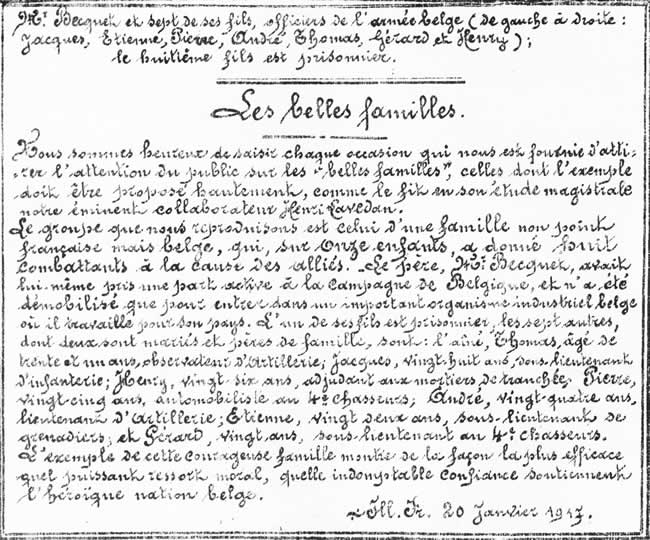 Mr. Becquet et sept de ses fils, officiers de l'armée belge (de gauche à droite :
Jacques, Etienne, Pierre, André, Thomas, Gérard et Henry) ;
le huitième fils est prisonnier.
Les belles familles.
Nous sommes heureux de saisir chaque occasion qui nous est fournie d'atti-
-rer l'attention du public sur les "belles familles", celles dont l'exemple
doit être proposé hautement, comme le fit en son étude magistrale
notre éminent collaborateur Henri Lavedan.
Le groupe que nous reproduisons est celui d'une famille non point
française mais belge, qui, sur onze enfants, a donné huit
combattants à la cause des alliés. - Le père, Mr. Becquet, avait
lui-même pris une part active à la campagne de Belgique, et n'a été
démobilisé que pour entrer dans un important organisme industriel belge
où il travaille pour son pays. L'un de ses fils est prisonnier, les sept autres,
dont deux sont mariés et pères de famille, sont : l'aîné, Thomas, âgé de
trente et un ans, observateur d'Artillerie; Jacques, vingt-huit ans, sous-lieutenant
d'infanterie; Henry, vingt six ans, adjudant aux mortiers de tranchée. Pierre,
vingt-cinq ans, automobiliste au 4e Chasseurs; André, vingt-quatre ans,
lieutenant d'Artillerie; Etienne, vingt deux ans, sous-lieutenant de
grenadiers; et Gérard, vingt ans, sous-lieutenant au 4e chasseurs.
L'exemple de cette courageuse famille montre de la façon la plus efficace
quel puissant ressort moral, quelle indomptable confiance soutiennent
l'héroïque nation belge.
- Ill. Fr. 20 Janvier 1917.